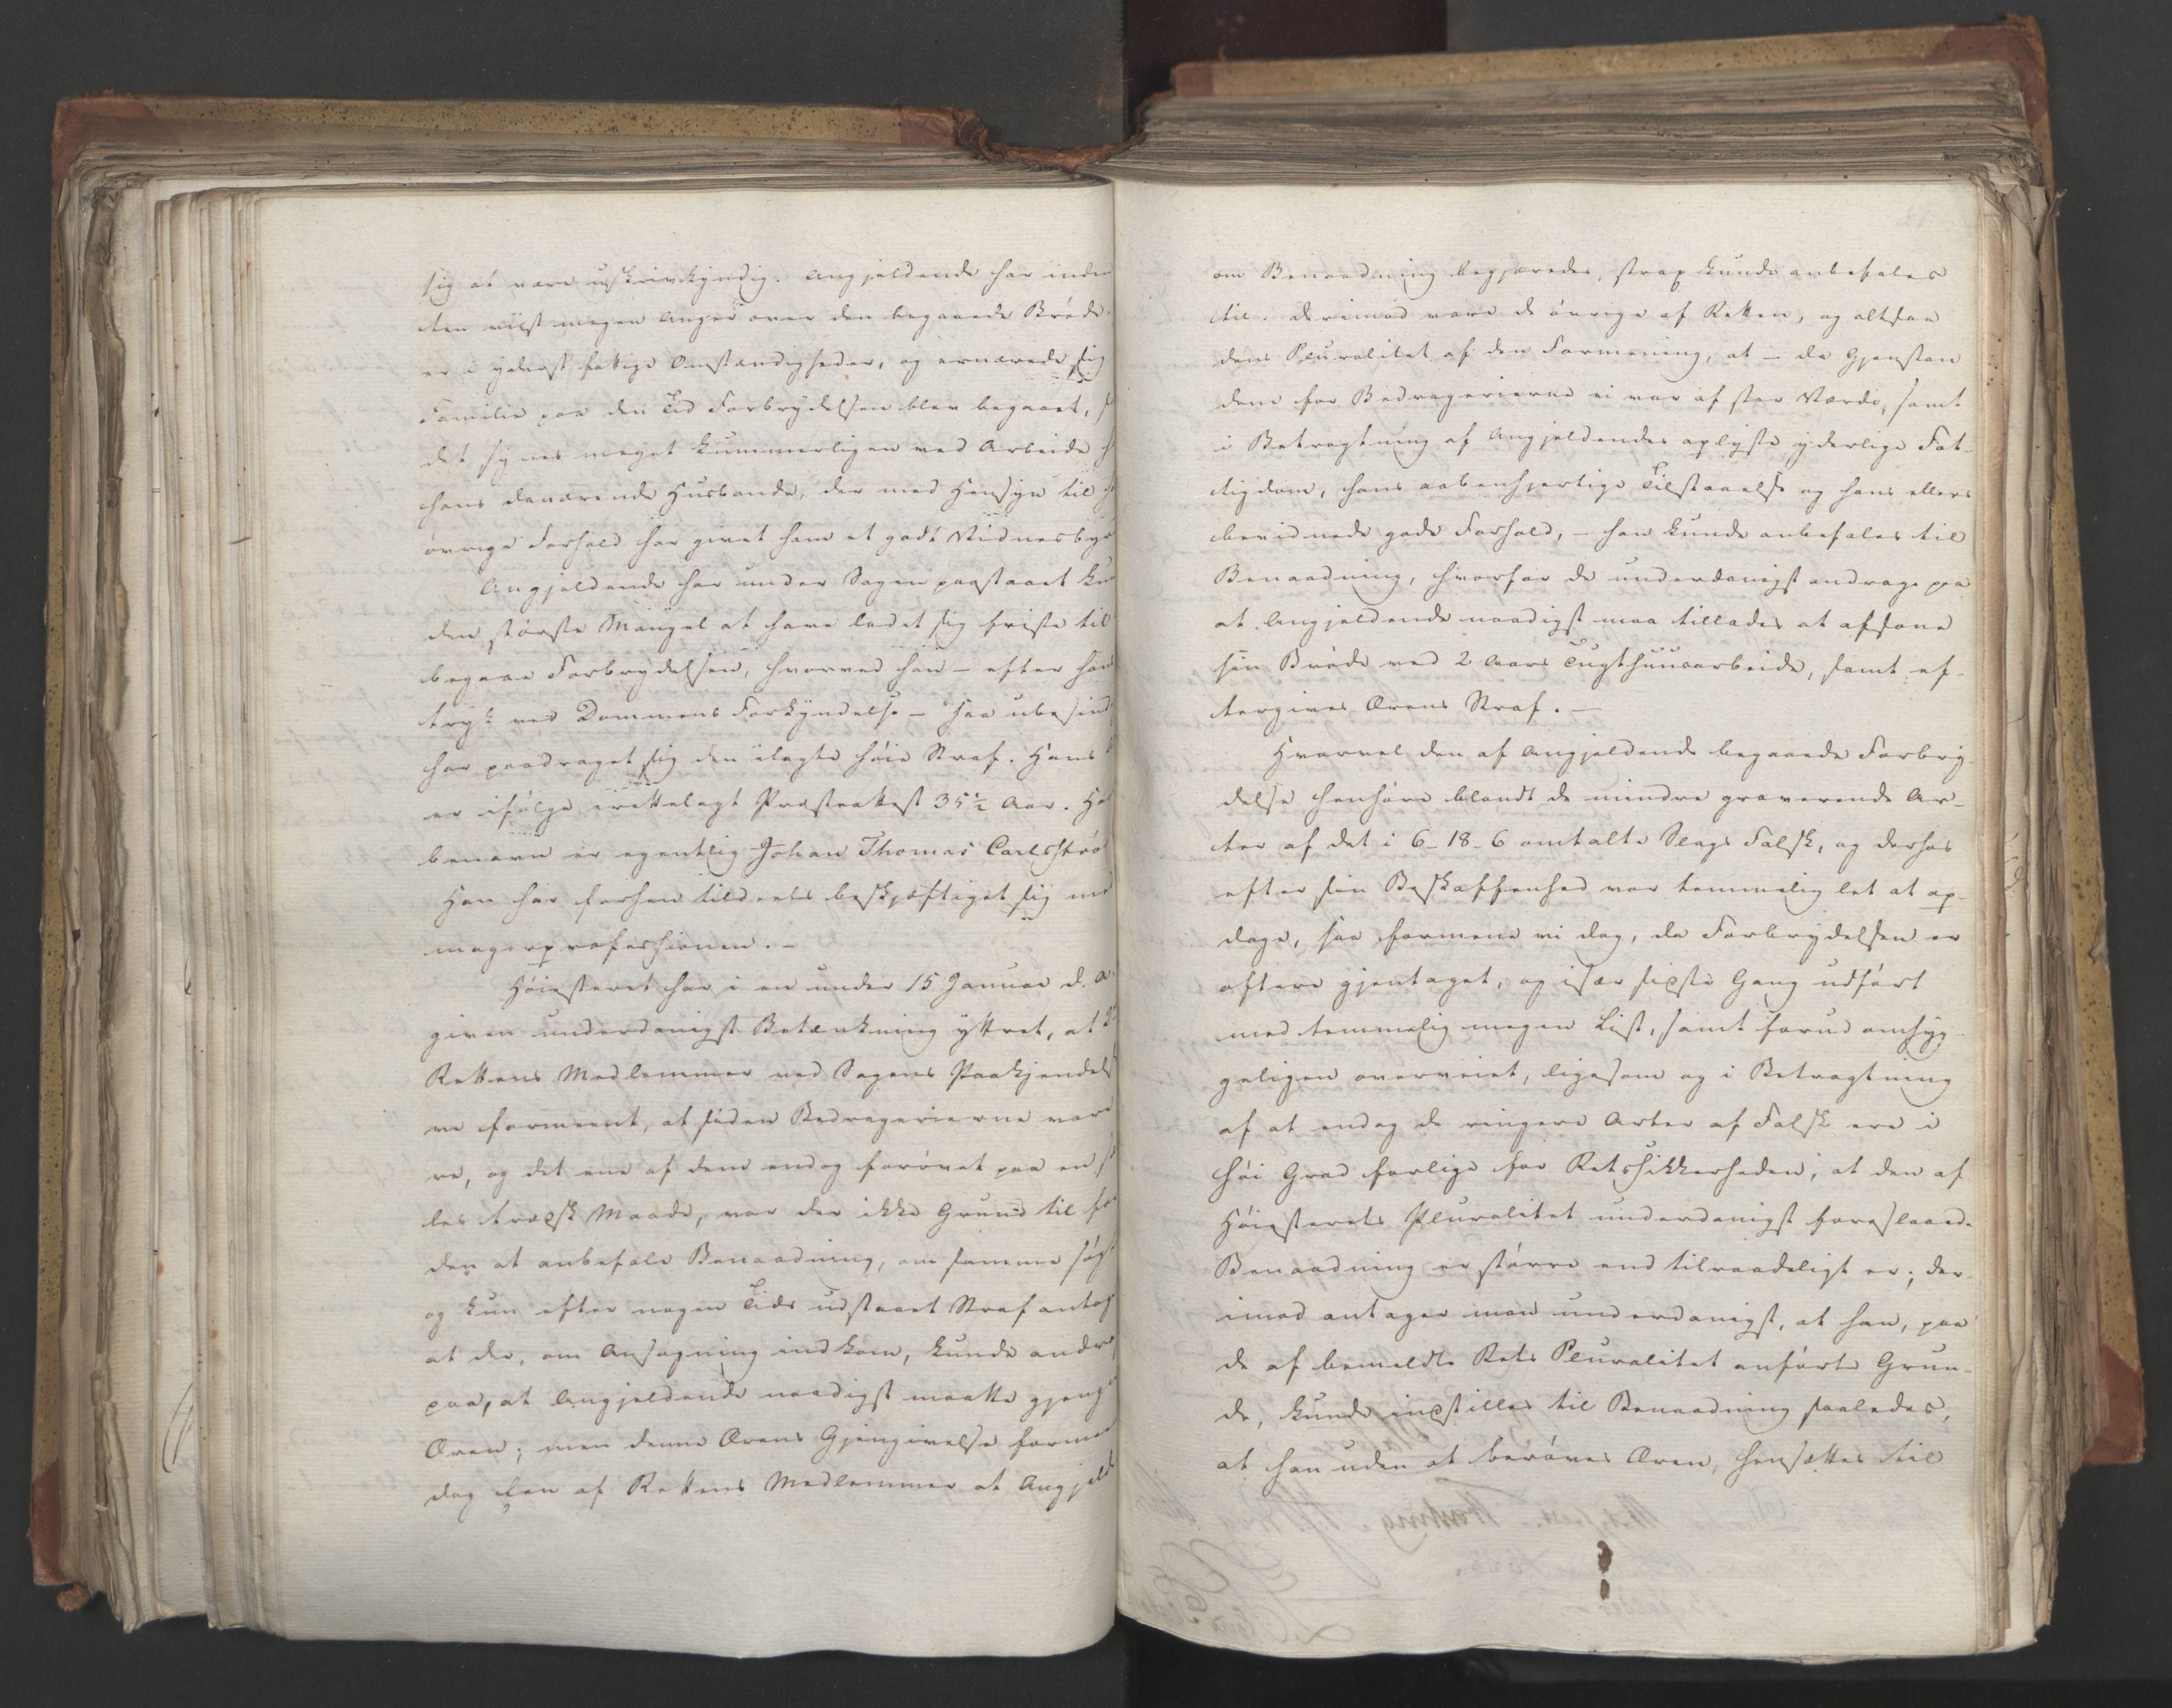 sig at være uskrivkyndig. Angjeldende har inden
ten viist megen Anger over den begaaede Brøde.
er i yderst fattige Omstændigheder, og ernærede sig
Familie paa den Tid Forbrydelsen blev begaaet,
det synes meget kummerligen ved Arbeide
hans daværende Husbonde, der med Hensyn til
øvrige Forhold har givet ham et godt Vidnesbyr
Angjeldende har under Sagen paastaaet kun
den største Mangel at have ladet sig friste til
begaae Forbrydelsen, hvorved han – efter hans
tryk ved Dommens Forkyndelse – "saa ubesind
har paadraget sig den ilagte høie Straf. Hans
er ifølge irettelagt Præsteattest 35½ Aar. Ha
benavn er egentlig Johan Thomas Carlsstrø
Han har forhen tildeels beskjæftiget sig med
magerprofessionen. –
Høiesteret har i en under 15 Januar d. A.
given underdanigst Betænkning yttret, at 2
Rettens Medlemmer ved Sagens Paakjendels
ve formeent, at siden Bedragerierne vare
re, og det ene af dem endog forøvet paa en
les træsk Maade, var der ikke Grund til
den at anbefale Benaadning, om samme søg
og kun efter nogen Tids udstaaet Straf antog
at der, om Ansøgning indkom, kunde andra
paa, at Angjeldende naadigst maatte gjeng
Æren; men denne Ærens Gjengivelse formee
dog een af Rettens Medlemmer at Angjeld
om Benaadning begjæredes, strax kunde anbefales
til. Derimod vare de øvrige af Retten, og altsaa
dens Pluralitet af den Formening, at – da Gjenstan
dene for Bedragerierne ei var af stor Værdi, samt
i Betragtning af Angjeldendes oplyste yderlige Fat-
tigdom, hans aabenhjertige Tilstaaelse og hans ellers
bevidnede gode Forhold, – han kunde anbefales til
Benaadning, hvorfor de underdanigst andrage paa
at Angjeldende naadigst maa tillades at afsone
sin Brøde ved 2 Aars Tugthuusarbeide, samt ef-
tergives Ærens Straf. –
Hvorvel den af Angjeldende begaaede Forbry
delse henhøre blandt de mindre graverende Ar-
ter af det i 6-18-6 omtalte Slags Falsk, og derhos
efter sin Beskaffenhed var temmelig let at op-
dage, saa formene vi dog, da Forbrydelsen er
oftere gjentaget, og især sidste Gang udført
med temmelig megen List, samt forud omhyg
geligen overveiet, ligesom og i Betragtning
af at endog de ringere Arter af Falsk ere i
høi Grad farlige for Retssikkerheden, at den af
Høiesterets Pluralitet underdanigst foreslaaede
Benaadning er større end tilraadeligt er; der-
imod antager man underdanigst, at han, paa
de af bemeldte Rets Pluralitet anførte Grun-
de, kunde indstilles til Benaadning saaledes,
at han uden at berøves Æren, hensættes til